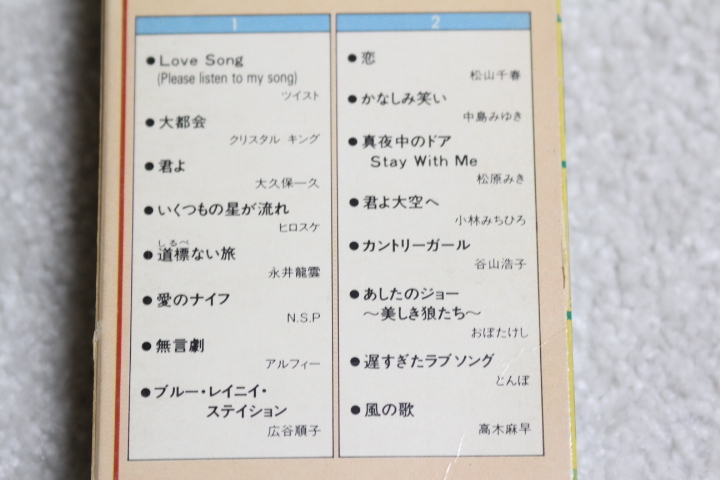 1
● Love Song
(Please listen to my song)
ツイスト
● 大都会
クリスタル キング
● 君よ
大久保一久
● いくつもの星が流れ
ヒロスケ
しるべ
● 道標ない旅
永井龍雲
● 愛のナイフ
N.S.P
● 無言劇
アルフィー
● ブルー・レイニイ・
ステイション
広谷順子
2
● 恋
松山千春
● かなしみ笑い
中島みゆき
● 真夜中のドア
Stay With Me
松原みき
● 君よ大空へ
小林みちひろ
● カントリーガール
谷山浩子
● あしたのジョー
〜美しき狼たち〜
おぼたけし
● 遅すぎたラブソング
とんぼ
● 風の歌
高木麻早